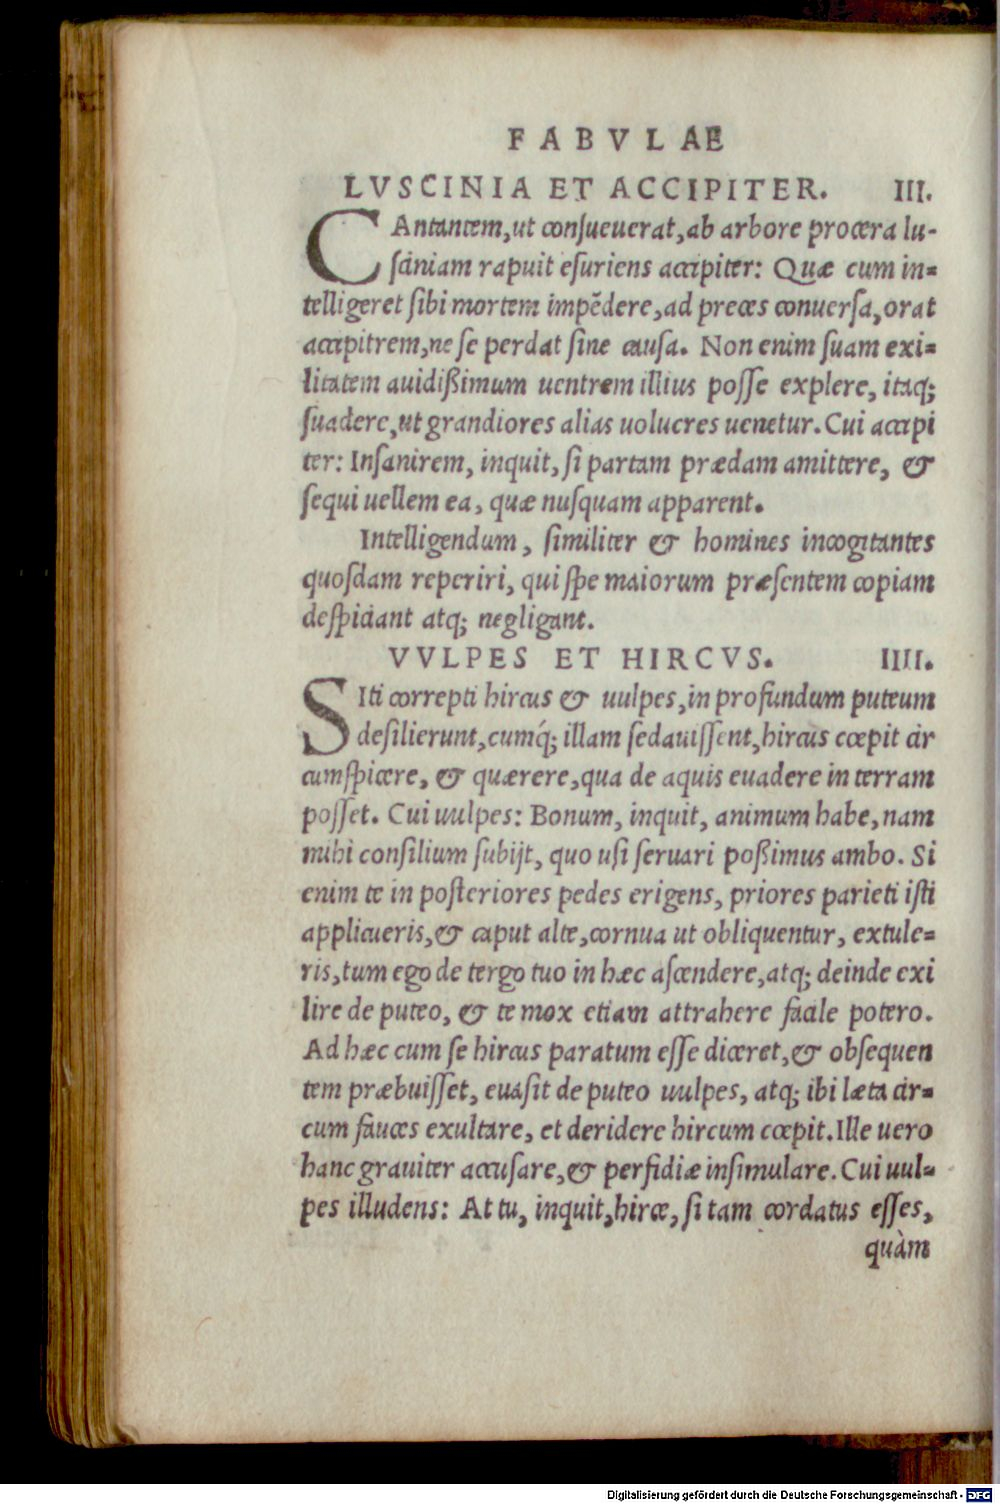 FABVLAE
LVSCINIA ET ACCIPITER. III.
CAntantem,ut consueuerat,ab arbore procera lu-
sciniam rapuit esuriens accipiter: Quæ cum in=
telligeret sibi mortem impēdere,ad preces conuersa,orat
accipitrem,ne se perdat sine causa. Non enim suam exi=
litatem auidißimum uentrem illius posse explere, itaq;
suadere,ut grandiores alias uolucres uenetur. Cui accipi
ter: Insanirem, inquit, si partam prædam amittere, &
sequi uellem ea, quæ nusquam apparent.
Intelligendum, similiter & homines incogitantes
quosdam reperiri, qui spe maiorum præsentem copiam
despiciant atq; negligant.
VVLPES ET HIRCVS. IIII.
SIti correpti hircus & uulpes,in profundum puteum
desilierunt,cumq́; illam sedauissent,hircus cœpit cir
cumspicere, & quærere,qua de aquis euadere in terram
posset. Cui uulpes: Bonum, inquit, animum habe, nam
mihi consilium subijt, quo usi seruari poßimus ambo. Si
enim te in posteriores pedes erigens, priores parieti isti
applicueris,& caput alte,cornua ut obliquentur, extule=
ris,tum ego de tergo tuo in hæc ascendere,atq; deinde exi
lire de puteo, & te mox etiam attrahere facile potero.
Ad hæc cum se hircus paratum esse diceret,& obsequen
tem præbuisset, euasit de puteo uulpes, atq; ibi læta cir=
cum fauces exultare, et deridere hircum cœpit. Ille uero
hanc grauiter accusare,& perfidiæ insimulare. Cui uul=
pes illudens: At tu, inquit,hirce, si tam cordatus esses,
quàm
Digitalisierung gefördert durch die Deutsche Forschungsgemeinschaft - DFG